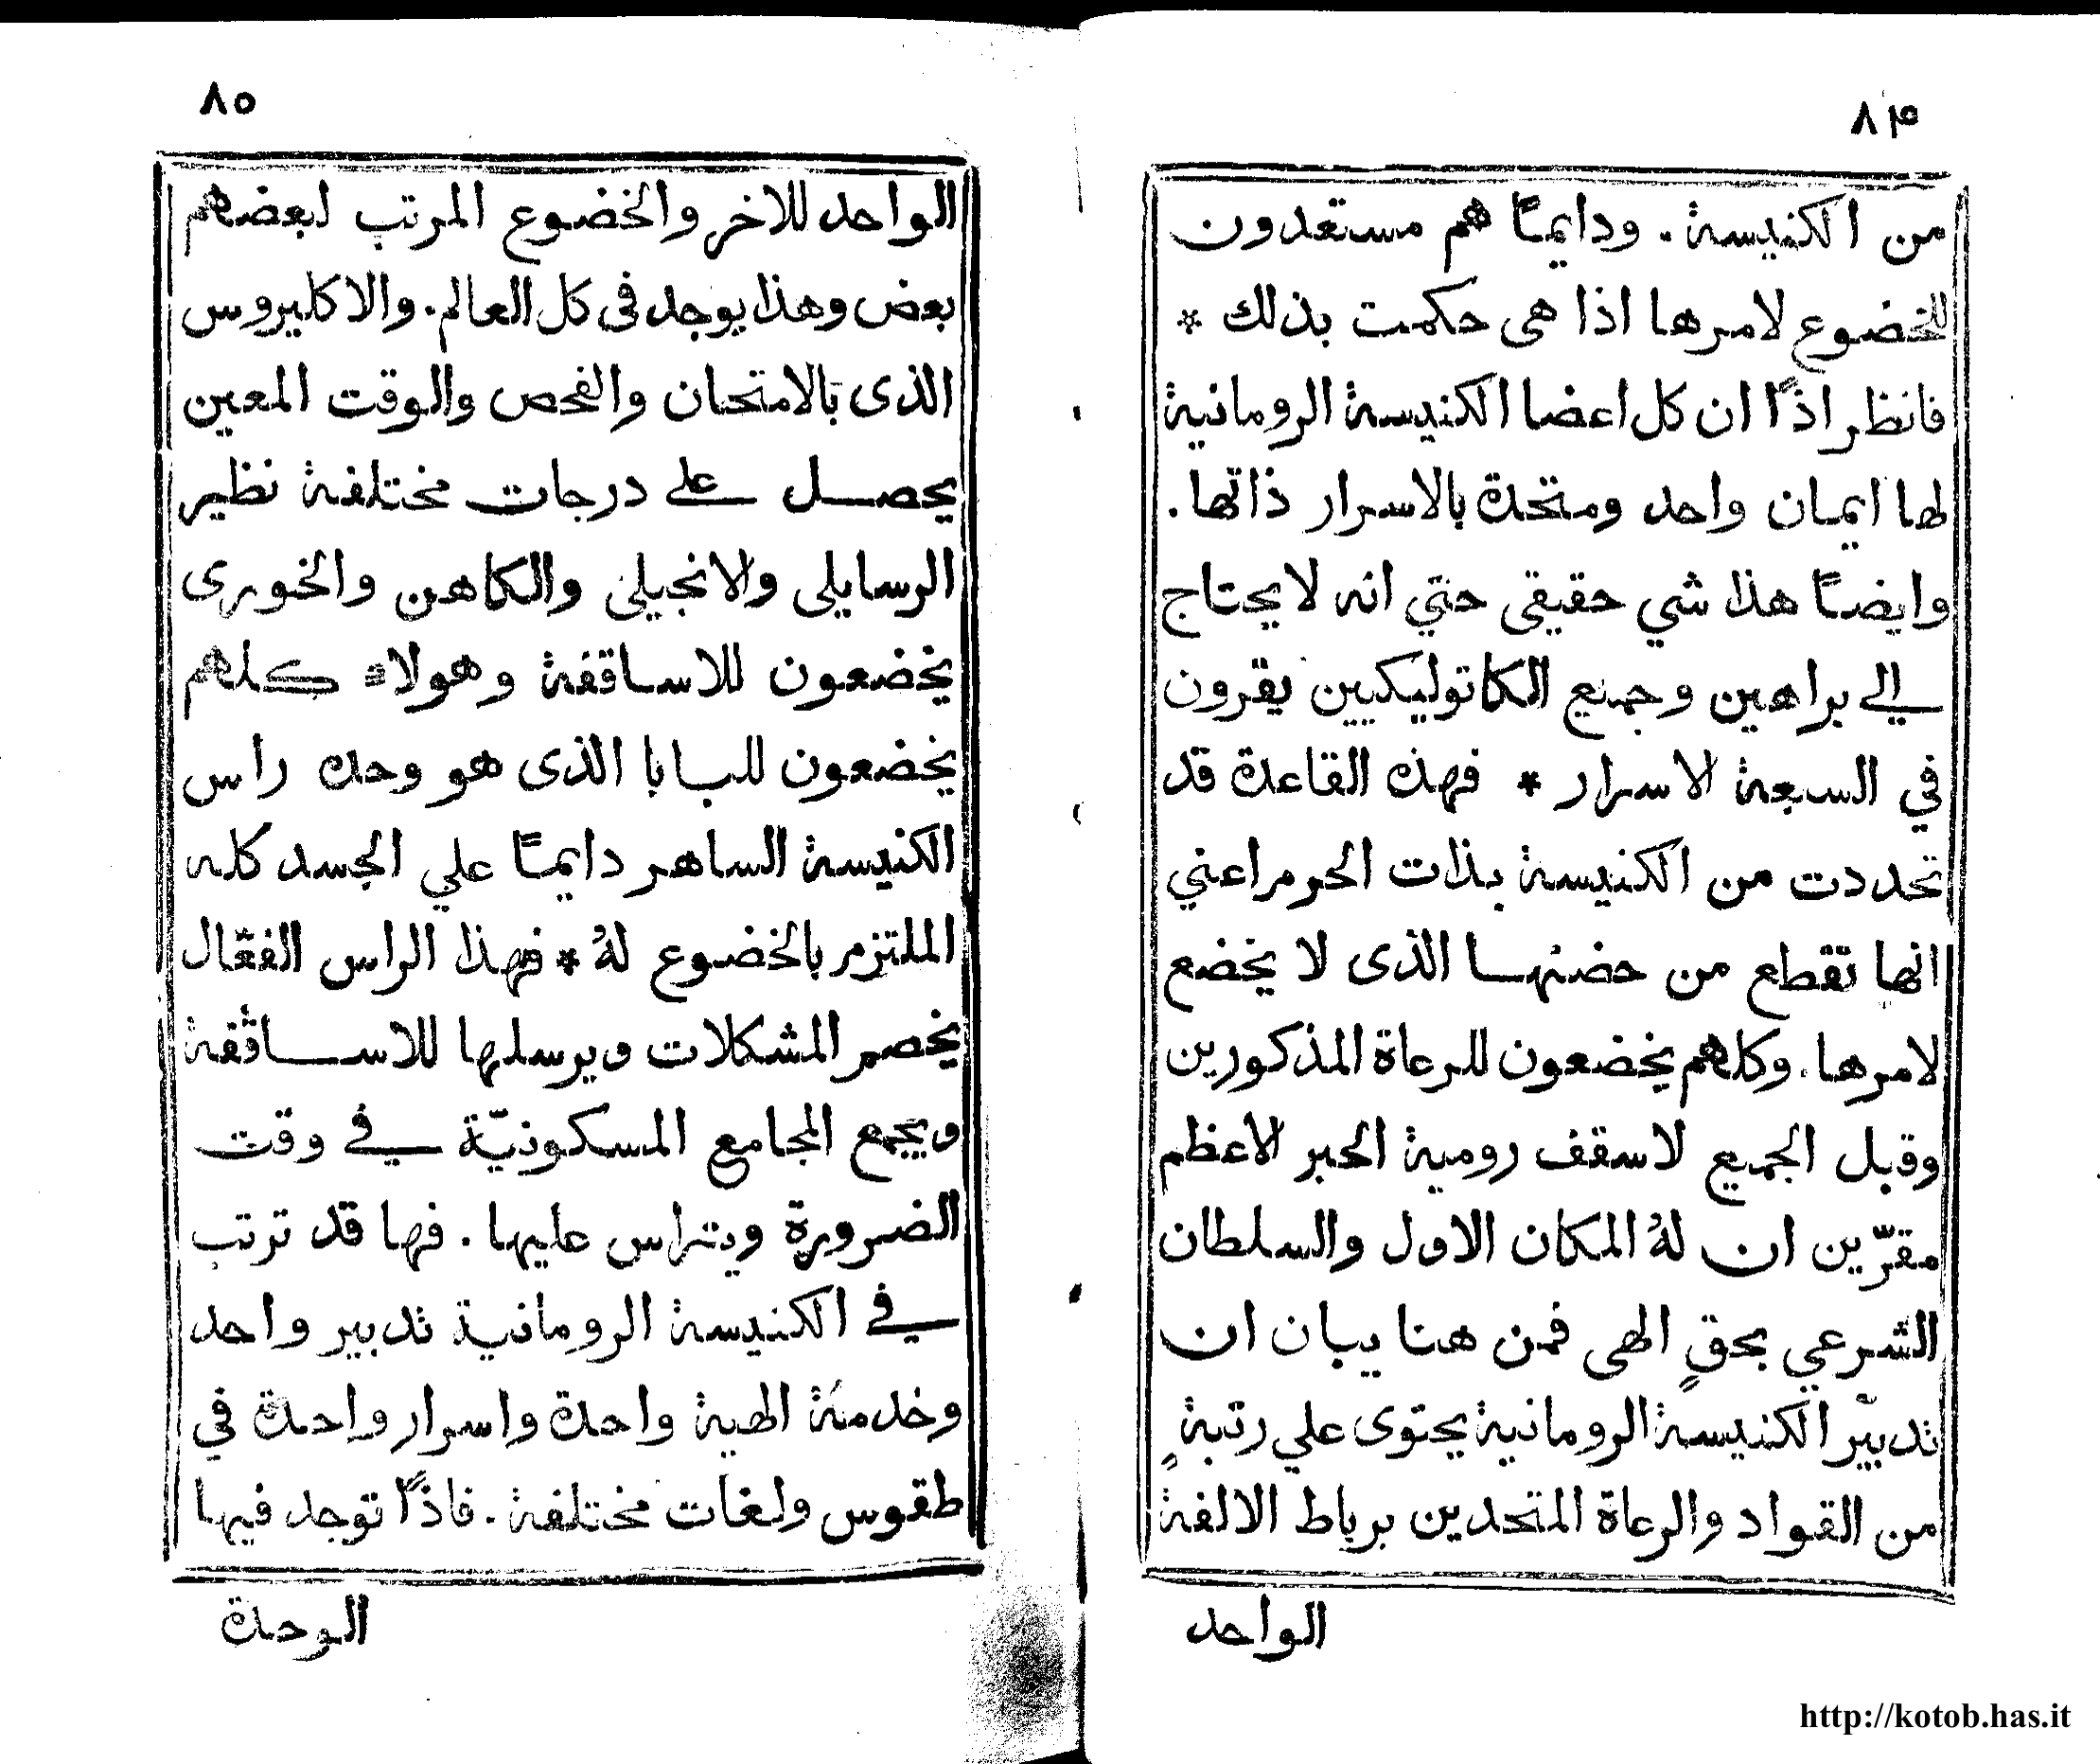 ٨٤
من الكنيسة. ودايمًا هم مستعدون
للخضوع لامرها اذا هى حكمت بذلك *
فانظر اذًا ان كل اعضا الكنيسة الرومانية
لها ايمان واحد ومتحدة بالاسرار ذاتها.
وايضًا هذا شي حقيقى حتي انه لا يحتاج
الي براهين وجميع الكاتوليكيين يقرون
في السبعة الاسرار * فهذه القاعدة قد
تحددت من الكنيسة بذات الحرم اعني
انها تقطع من حضنها الذى لا يخضع
لامرها. وكلهم يخضعون للرعاة المذكورين
وقبل الجميع لاسقف رومية الحبر الاعظم
مقرّين ان لهُ المكان الاول والسلطان
الشرعي بحقٍ الهى فمن هنا يبان ان
تدبير الكنيسة الرومانية يحتوى علي رتبةٍ
من القواد والرعاة المتحدين برباط الالفة
الواحد
٨٥
الواحد للاخر والخضوع المرتب لبعضهم
بعض وهذا يوجد فى كل العالم. والاكليروس
الذى بالامتحان والفحص والوقت المعين
يحصل على درجات مختلفة نظير
الرسايلى والانجيلى والكاهن والخورى
يخضعون للاساقفة وهولاء كلهم
يخضعون للبابا الذى هو وحده راس
الكنيسة الساهر دايمًا علي الجسد كله
الملتزم بالخضوع لهُ * فهذا الراس الفعّال
يخصم المشكلات ويرسلها للاساقفة
ويجمع المجامع المسكونيّة في وقت
الضرورة ويتراس عليها. فها قد ترتب
في الكنيسة الرومانية تدبير واحد
وخدمة الهية واحدة واسرار واحدة في
طقوس ولغات مختلفة. فاذًا توجد فيها
الوحدة
http://kotob.has.it